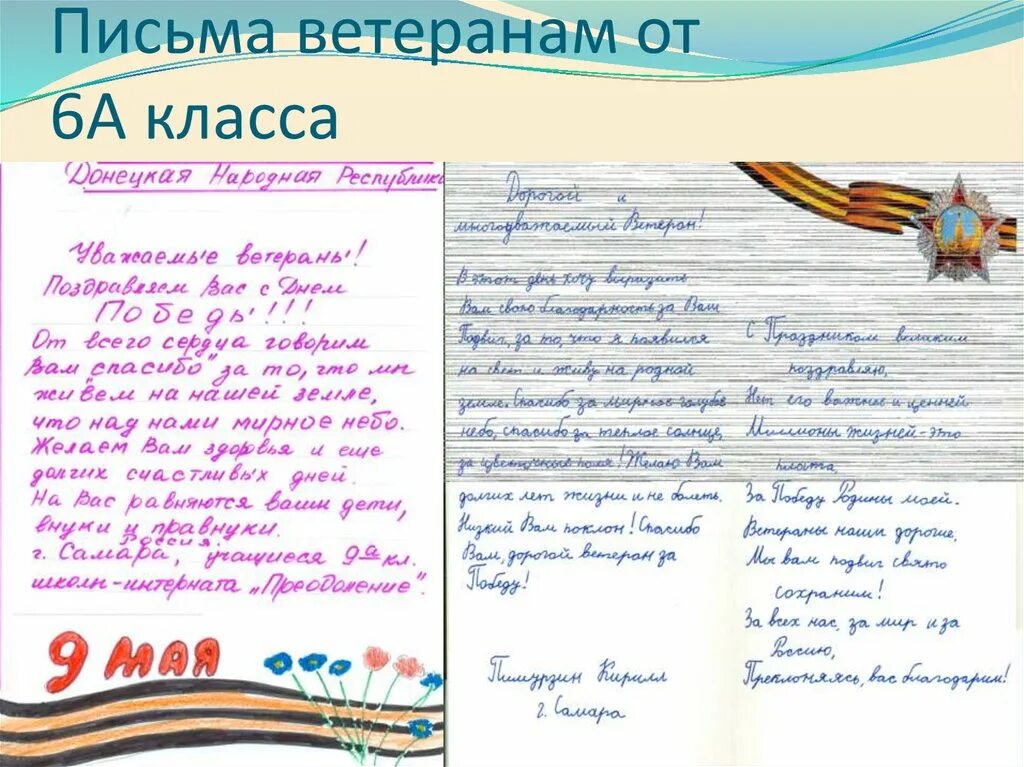 Письма ветеранам от
6А класса
Донецкая Народная Республика
Уважаемые ветераны!
Поздравляем Вас с Днем
Победы!!!
От всего сердца говорим
Вам "спасибо" за то, что мы
живем на нашей земле,
что над нами мирное небо.
Желаем Вам здоровья и еще
долгих счастливых дней.
На Вас равняются ваши дети,
внуки и правнуки.
Россия.
г. Самара, учащиеся 9а кл.
школы-интерната „Преодоление".
9 мая
Дорогой и
многоуважаемый Ветеран!
В этот день хочу выразить
Вам свою благодарность за Ваш
Подвиг, за то, что я появился
на свет и живу на родной
земле. Спасибо за мирное голубое
небо, спасибо за теплое солнце,
за цветочные поля! Желаю Вам
долгих лет жизни и не болеть.
Низкий Вам поклон! Спасибо
Вам, дорогой ветеран за
Победу!
Пимурзин Кирилл
г. Самара
С Праздником великим
поздравляю,
Нет его важнее и ценней
Миллионы жизней-это
плата,
За Победу Родины моей.
Ветераны наши дорогие,
Мы вам подвиг свято
сохраним!
За всех нас, за мир и за
Россию,
Преклоняясь, вас благодарим!